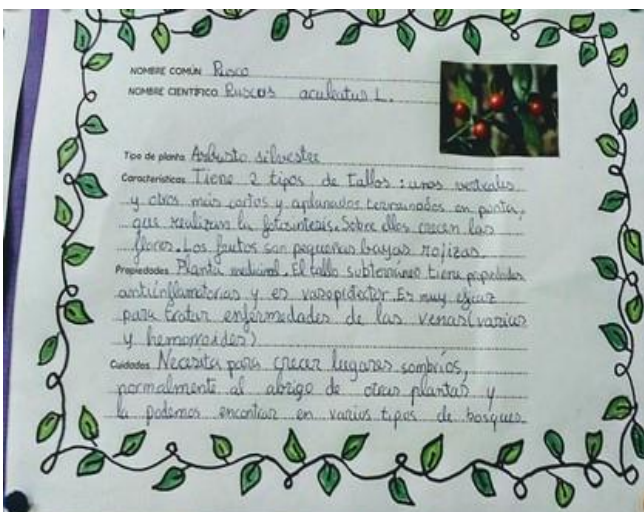 NOMBRE COMÚN Rusco
NOMBRE CIENTÍFICO Ruscus aculeatus L.
Tipo de planta Arbusto silvestre
Características Tiene 2 tipos de tallos: unos verticales
y otros más cortos y aplanados terminados en punta,
que realizan la fotosíntesis. Sobre ellos crecen las
flores. Los frutos son pequeñas bayas rojizas.
Propiedades Planta medicinal. El tallo subterráneo tiene propiedades
antiinflamatorias y es vasoprotector. Es muy eficaz
para tratar enfermedades de las venas (varices
y hemorroides)
Cuidados Necesita para crecer lugares sombríos,
normalmente al abrigo de otras plantas y
la podemos encontrar en varios tipos de bosques.